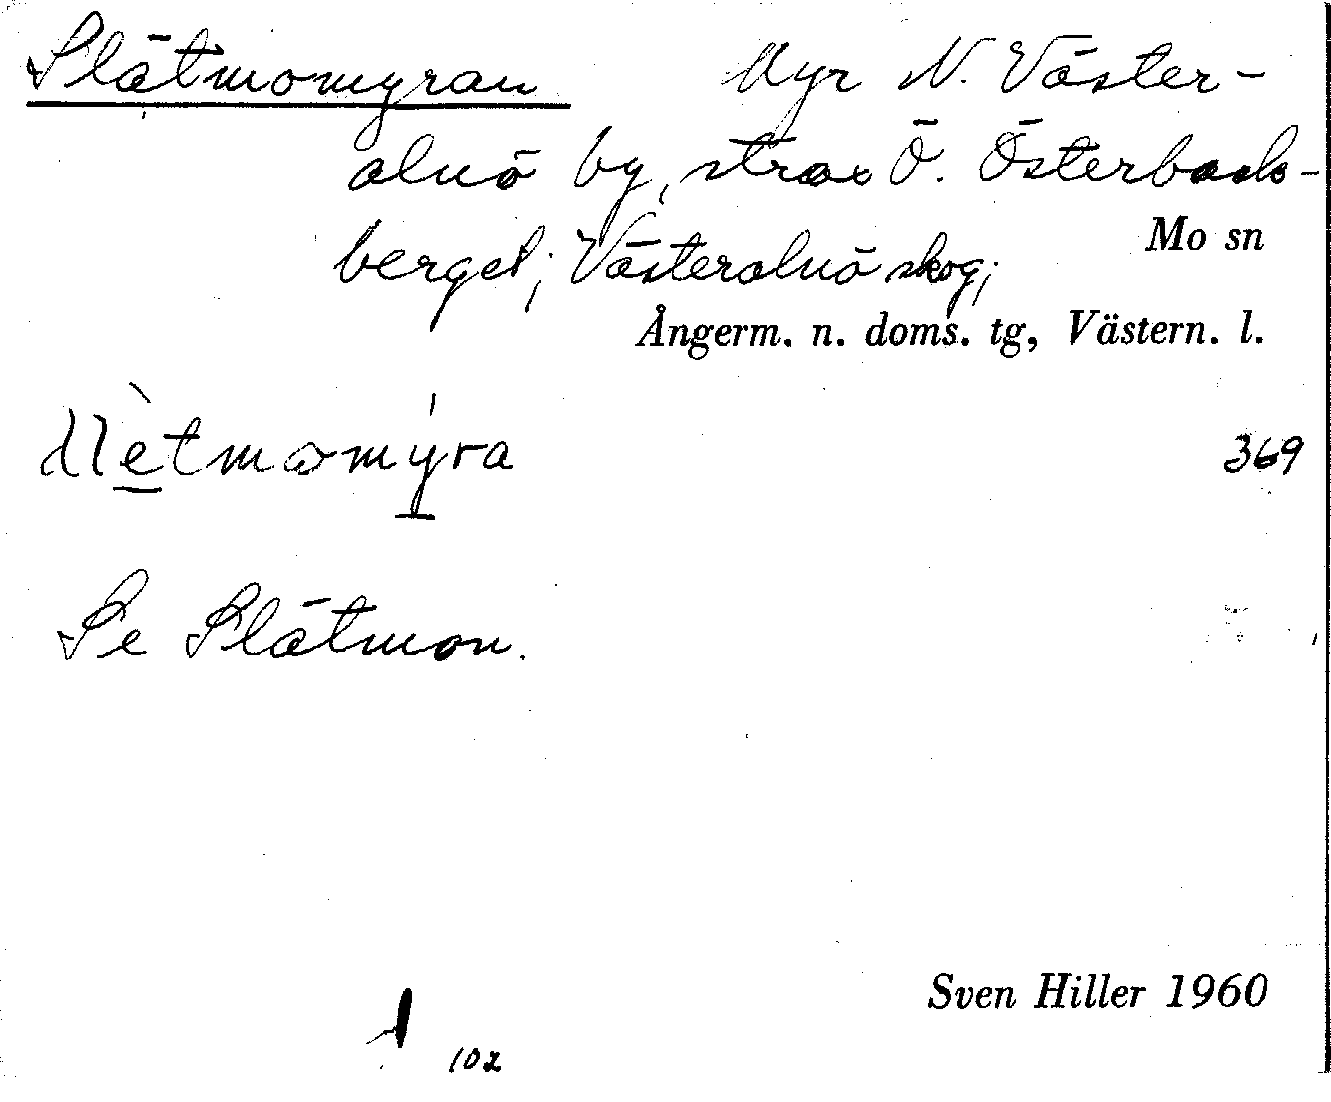 Slätmomyran Myr N. Väster-
alnö by, strax Ö. Österbacks-
berget; Västeralnö skog;
Mo sn
Ångerm. n. doms. tg, Västern. l.
369
Se Slätmon.
Sven Hiller 1960
102